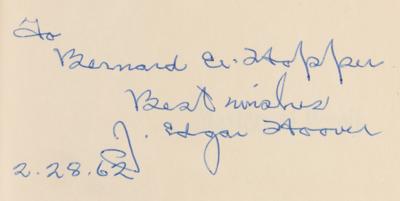 To
Bernard W. Hopper
Best wishes
J. Edgar Hoover
2.28.62